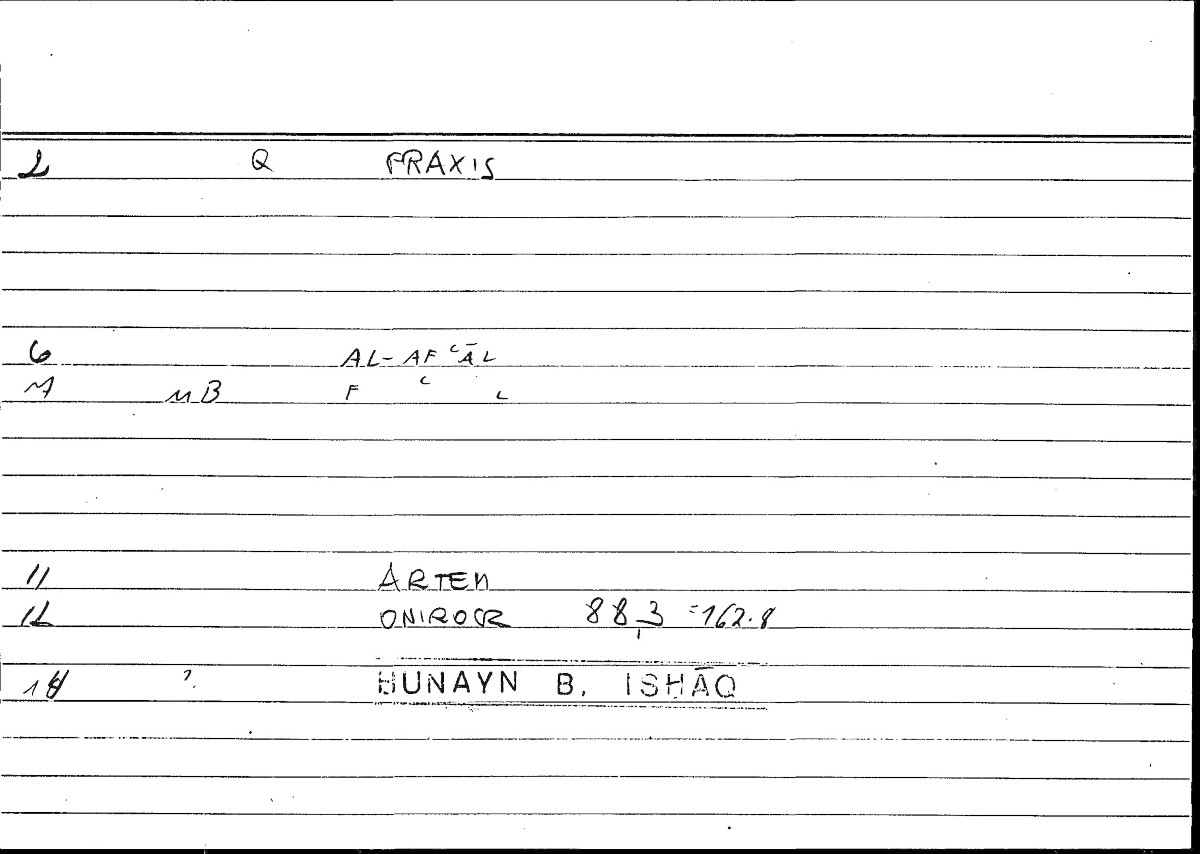 2 Q PRAXIS
6 AL-AFʿĀL
7 MB F ʿ L
11 ARTEM
12 ONIROCR 88,3 =162.8
14 ?. ḤUNAYN B. ISḤĀQ